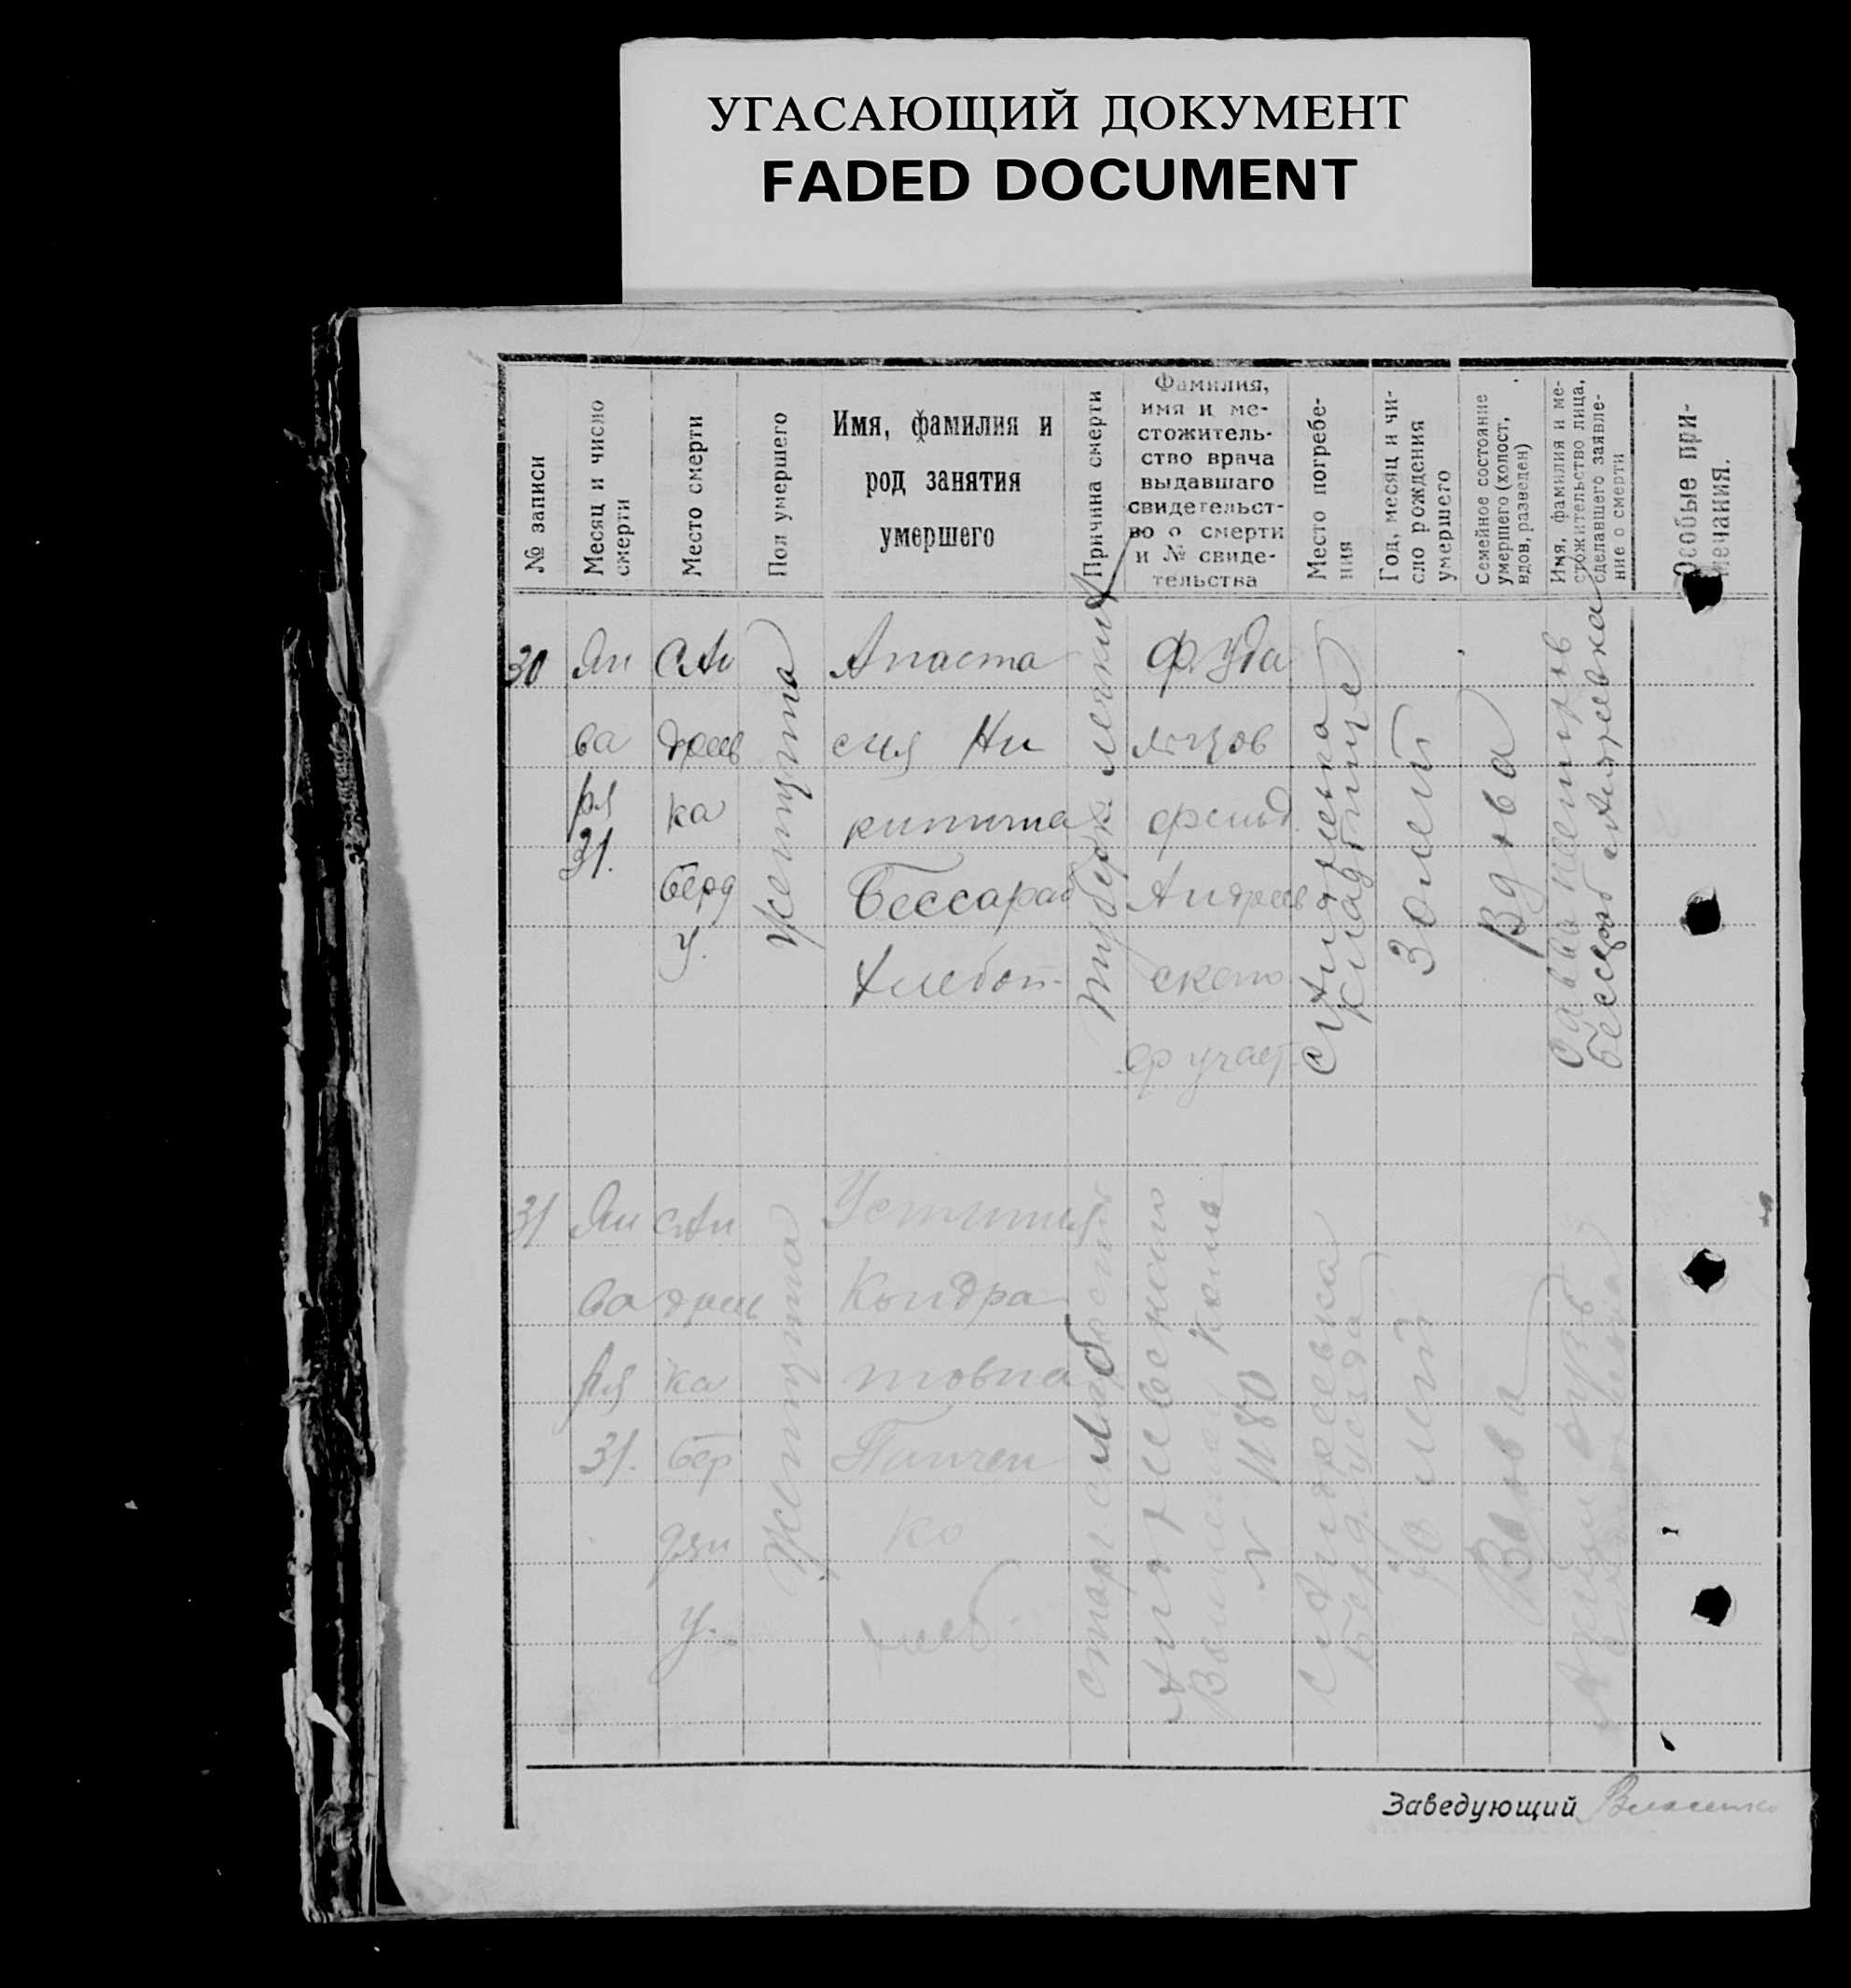 УГАСАЮЩИЙ ДОКУМЕНТ
FADED DOCUMENT
№ записи
Месяц и число
смерти
Место смерти
Пол умершего
Имя, фамилия и
род занятия
умершего
Причина смерти
Фамилия,
имя и ме-
стожитель-
ство врача
выдавшаго
свидетельст-
во о смерти
и № свиде-
тельства
Место погребе-
ния
Год, месяц и чи-
сло рождения
умершего
Семейное состояние
умершего (холост,
вдов, разведен)
Имя, фамилия и ме-
стожительство лица,
сделавшего заявле-
ние о смерти
Особые при-
мечания.
30
Ян
ва
ря
31.
с Ан
дреев
ка
Берд
у.
Женщина
Анаста
сия Ни
китична
Бессараб
Хлебоп.
туберк. легких
фельд.
Андреев
ского
участ.
с Андреевка
кладбище
30 лет
Вдова
Бессараб с Андреевка
31
Ян
ва
ря
31.
с Ан
дреев
ка
Бер
дян
у.
Женщина
Устиния
Кондра
товна
Панчен
ко
хлеб.
стар. слабость
Андреевского
N 1180
с Андреевка
Берд. уезда
70 лет
Вдова
Заведующий Власенко